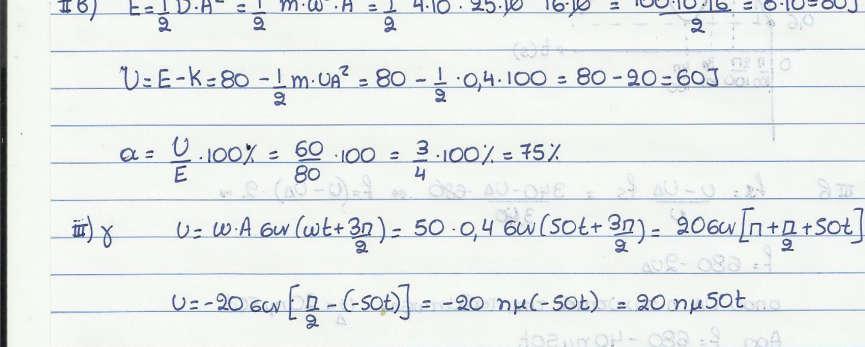 II β) E = 1/2 D·A² = 1/2 m·ω²·A² = 1/2 4·10 · 25·10 16·10 = 100·10·16/2 = 8·10 = 80J
U = E - K = 80 - 1/2 m·υA² = 80 - 1/2 · 0,4 · 100 = 80 - 20 = 60J
α = U/E · 100% = 60/80 · 100 = 3/4 · 100% = 75%
iii) γ υ = ω·A συν(ωt + 3π/2) = 50 · 0,4 συν(50t + 3π/2) = 20συν[π + π/2 + 50t]
υ = -20 συν[π/2 - (-50t)] = -20 ημ(-50t) = 20 ημ50t